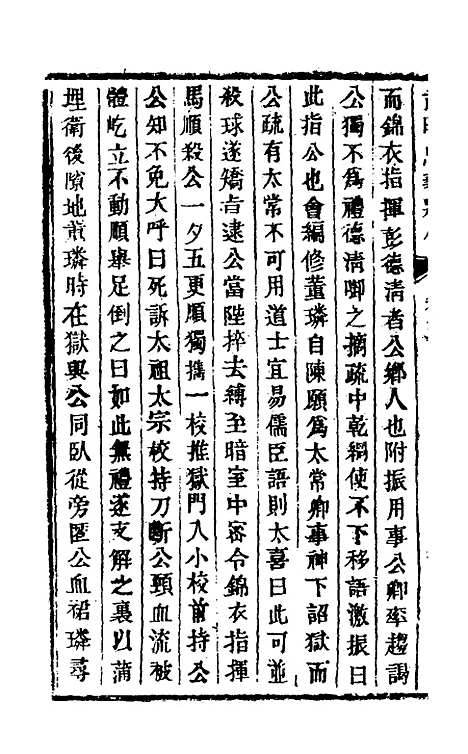 而錦衣指揮彭德清者公鄉人也附振用事公卿率趨謁
公獨不爲禮德清啣之摘疏中乾綱使不下移語激振曰
此指公也會編修董璘自陳願爲太常卿事神下詔獄而
公疏有太常不可用道士宜易儒臣語則大喜曰此可並
殺球遂矯旨逮公當陛捽去縛至暗室中密令錦衣指揮
馬順殺公一夕五更順獨攜一校推獄門入小校前持公
公知不免大呼曰死訴太祖太宗校持刀斷公頸血流被
體屹立不動順舉足倒之曰如此無禮遂支解之裹以蒲
埋衛後隙地前璘時在獄與公同臥從旁匿公血裙璘尋